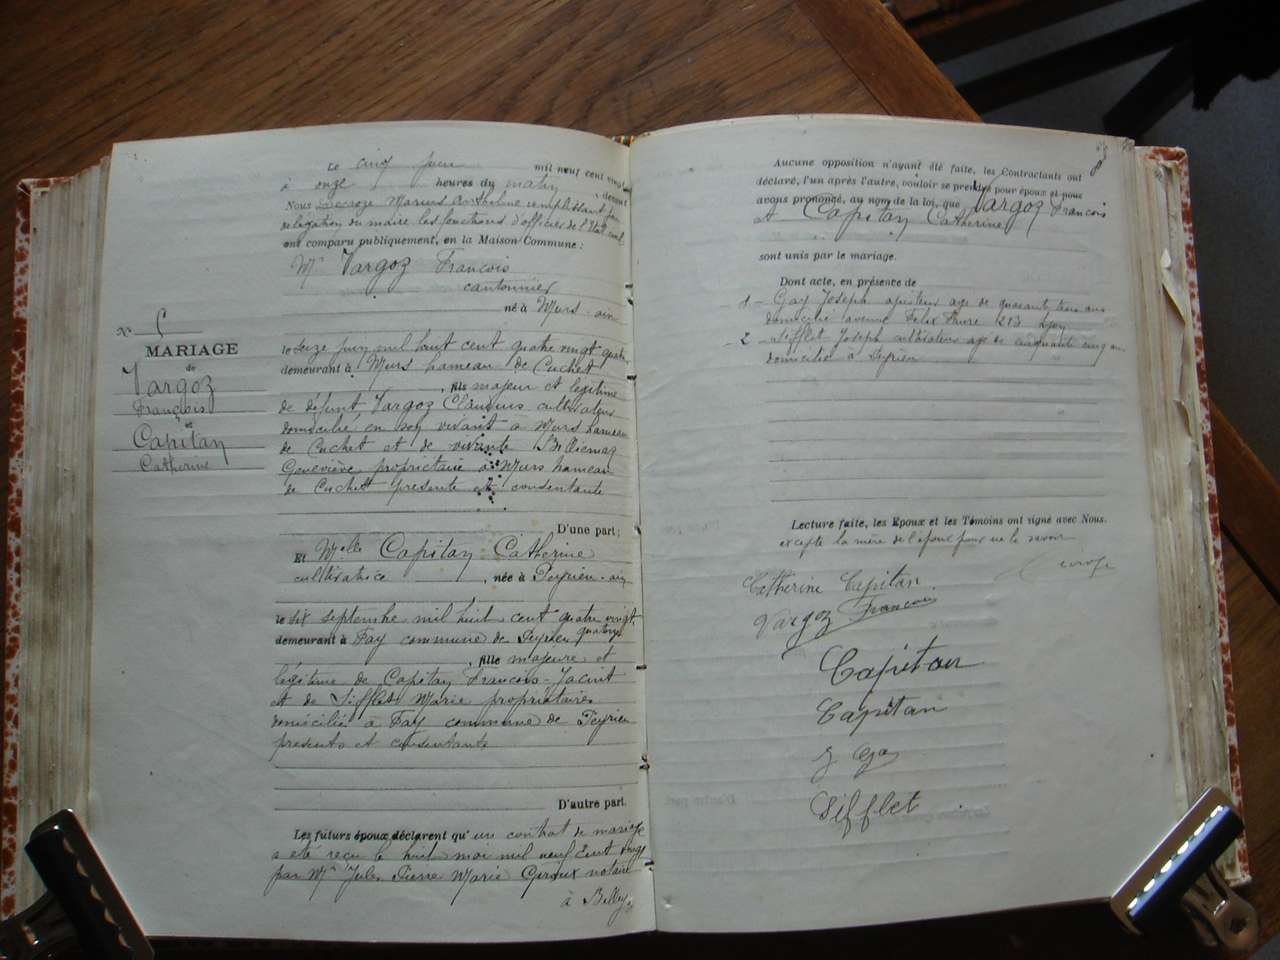 Le cinq juin mil neuf cent vingt
à onze heures du matin, devant
Nous Lacroze Marius Anthelme remplissant par
délégation du maire les fonctions d'officier de l'Etat civil
ont comparu publiquement, en la Maison Commune :
Mr Vargoz François
cantonnier
né à Murs - ain
le seize juin mil huit cent quatre vingt quatre
demeurant à Murs hameau de Cuchet
, fils majeur et légitime
de défunt Vargoz Claudius cultivateur
domicilié en son vivant à Murs hameau
de Cuchet et de vivante
Geneviève propriétaire à Murs hameau
de Cuchet présente et consentante
D'une part ;
Et Melle Capitan Catherine
cultivatrice , née à Peyrieu - ain
le six septembre mil huit cent quatre vingt
quatorze
demeurant à Fay commune de Peyrieu
, fille majeure et
légitime de Capitan François-Jacint
et de Sifflet Marie propriétaires
domiciliés à Fay commune de Peyrieu
présents et consentants
D'autre part.
Les futurs époux déclarent qu'un contrat de mariage
a été reçu le huit mai mil neuf cent vingt
par Me Jules Pierre Marie Giroux notaire
à Belley
No 5
MARIAGE
de
Vargoz
François
et
Capitan
Catherine
8
Aucune opposition n'ayant été faite, les Contractants ont
déclaré, l'un après l'autre, vouloir se prendre pour époux et nous
avons prononcé, au nom de la loi, que Vargoz François
et Capitan Catherine
sont unis par le mariage.
Dont acte, en présence de
- 1 - Gay Joseph âgé de quarante trois ans
domicilié avenue Felix Faure 213 Lyon
- 2 - Sifflet Joseph cultivateur âgé de cinquante cinq ans
domicilié à Peyrieu
Lecture faite, les Epoux et les Témoins ont signé avec Nous.
excepté la mère de l'époux pour ne le savoir
Catherine Capitan
Vargoz François
Capitan
Capitan
J Gay
Sifflet